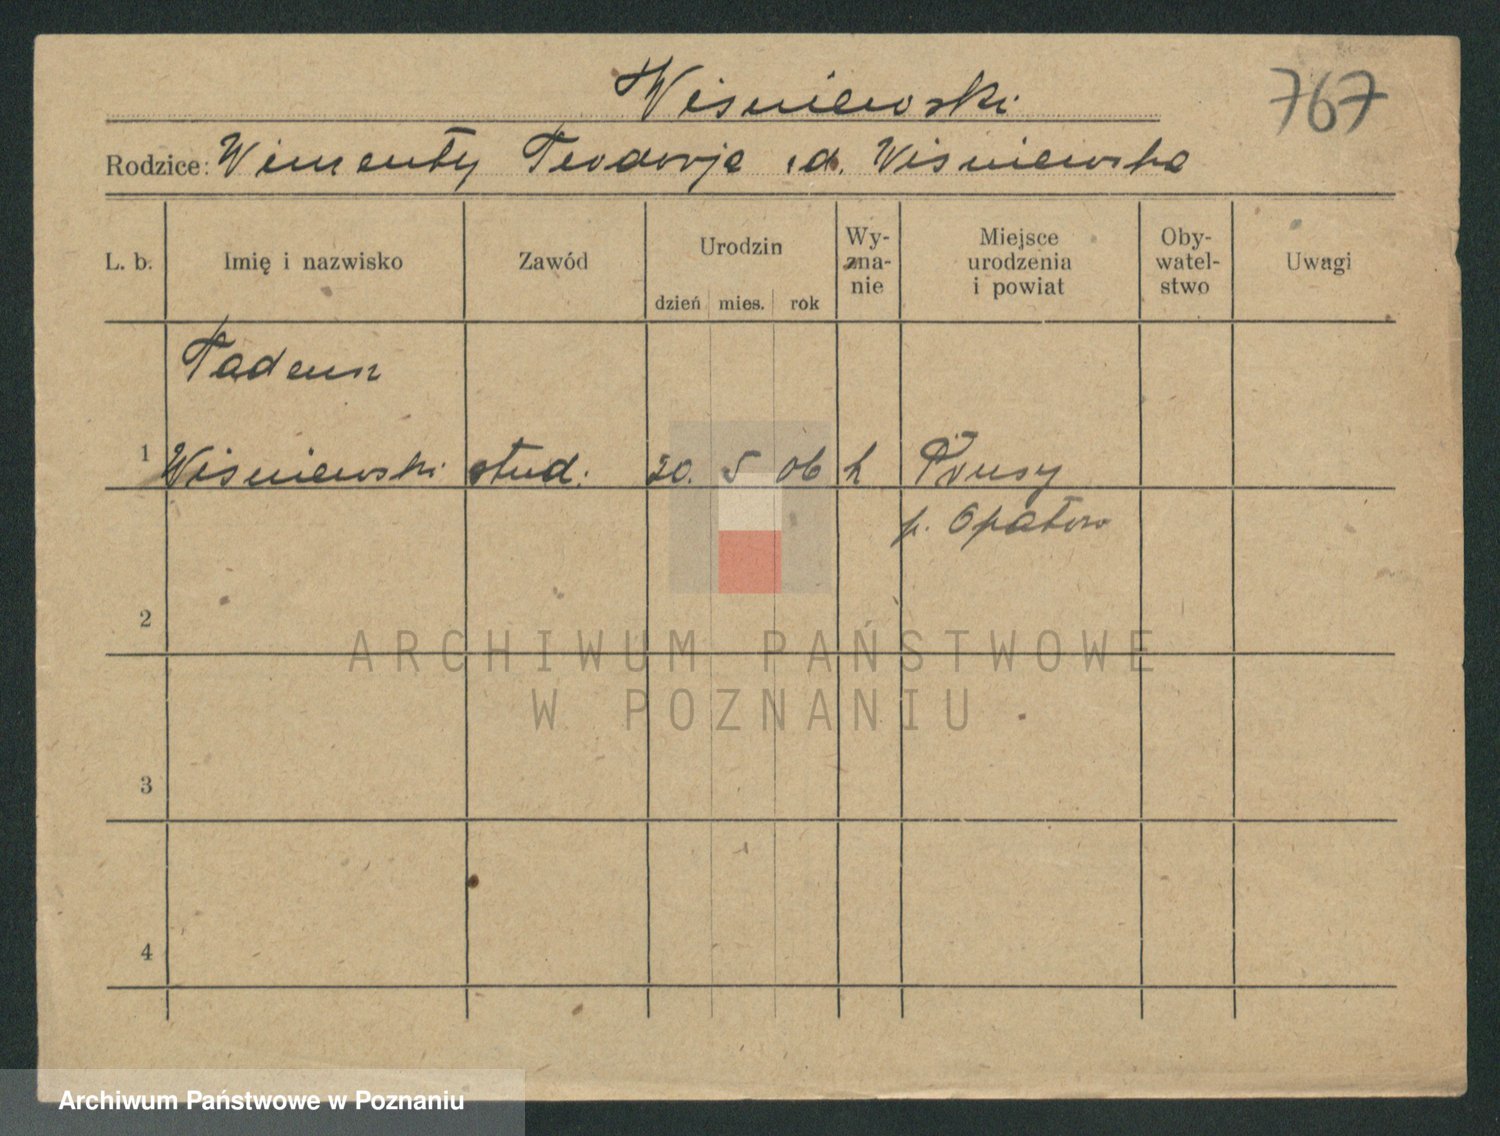 Wiśniewski
767
Rodzice: Teodorja Wiśniewska
L. b. Imię i nazwisko Zawód Urodzin Wy-zna-nie Miejsce urodzenia i powiat Oby-watel-stwo Uwagi
dzień mies. rok
Tadeusz
1 Wiśniewski stud. 20. 5 06 k Prusy
p. Opatow
2
ARCHIWUM PAŃSTWOWE
W POZNANIU
3
4
Archiwum Państwowe w Poznaniu